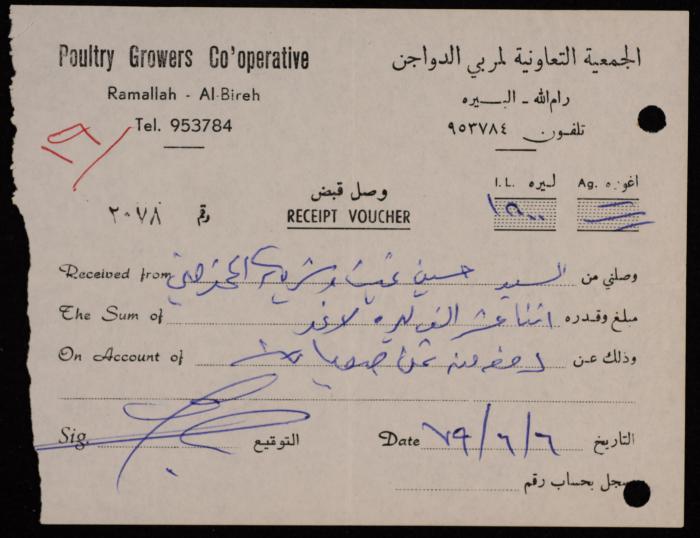 Poultry Growers Co'operative الجمعية التعاونية لمربي الدواجن
Ramallah - Al-Bireh رام الله - البيره
Tel. 953784 تلفون ٩٥٣٧٨٤
I.L. ليره Ag. اغوره
وصل قبض
رقم ٢٠٧٨ RECEIPT VOUCHER
Received from السيد حسين وصلني من
The Sum of اثنا عشر الف ليره لا غير مبلغ وقدره
On Account of دفعه من ثمن وذلك عن
Sig. التوقيع Date ٧٩/٦/٦ التاريخ
سجل بحساب رقم